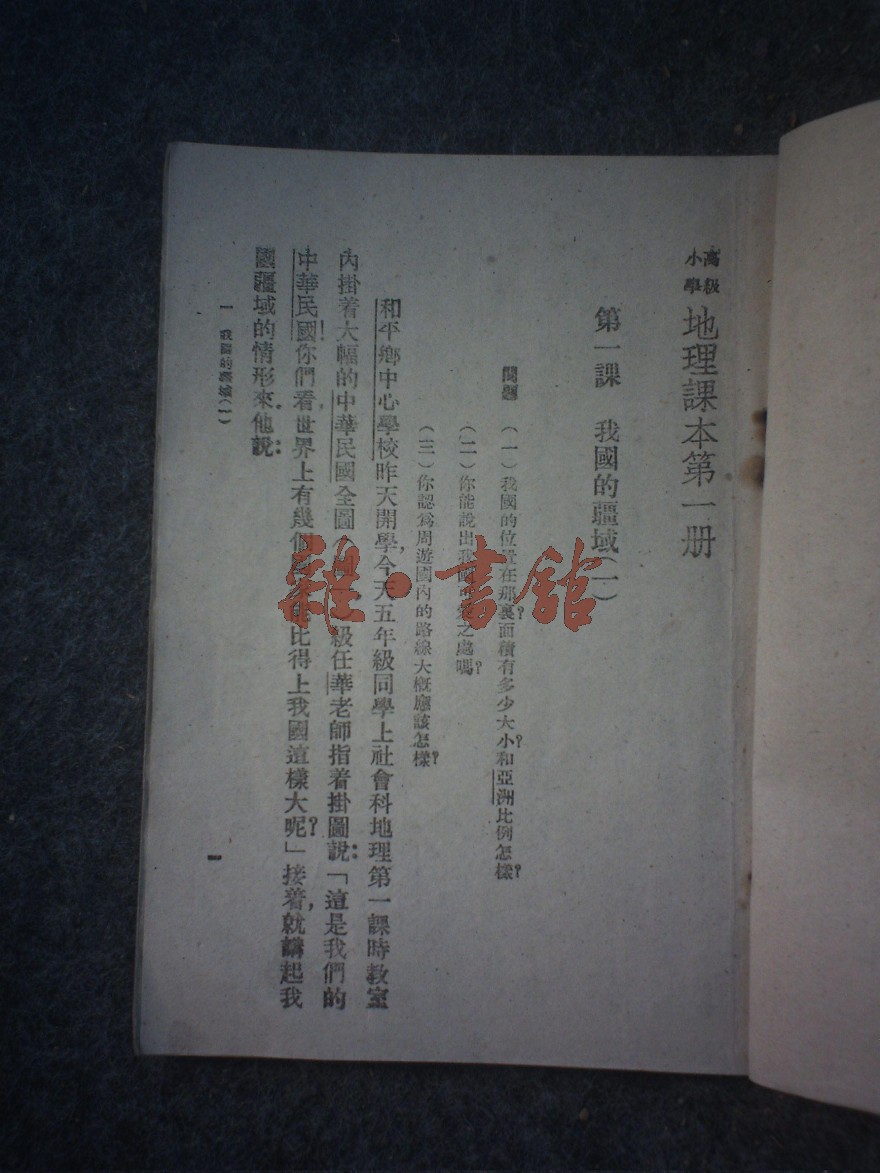 高級小學 地理課本第一册
第一課 我國的疆域(一)
問題 (一)我國的位置在那裏?面積有多少大小?和亞洲比例怎樣?
(二)你能說出我國可愛之處嗎?
(三)你認爲周遊國內的路線大概應該怎樣?
和平鄉中心學校昨天開學,今天五年級同學上社會科地理第一課時教室
內掛着大幅的中華民國全圖(圖一)級任華老師指着掛圖說:「這是我們的
中華民國!你們看,世界上有幾個 比得上我國這樣大呢?」接着,就講起我
國疆域的情形來.他說:
一 我國的疆域(一)
一
雜·書館